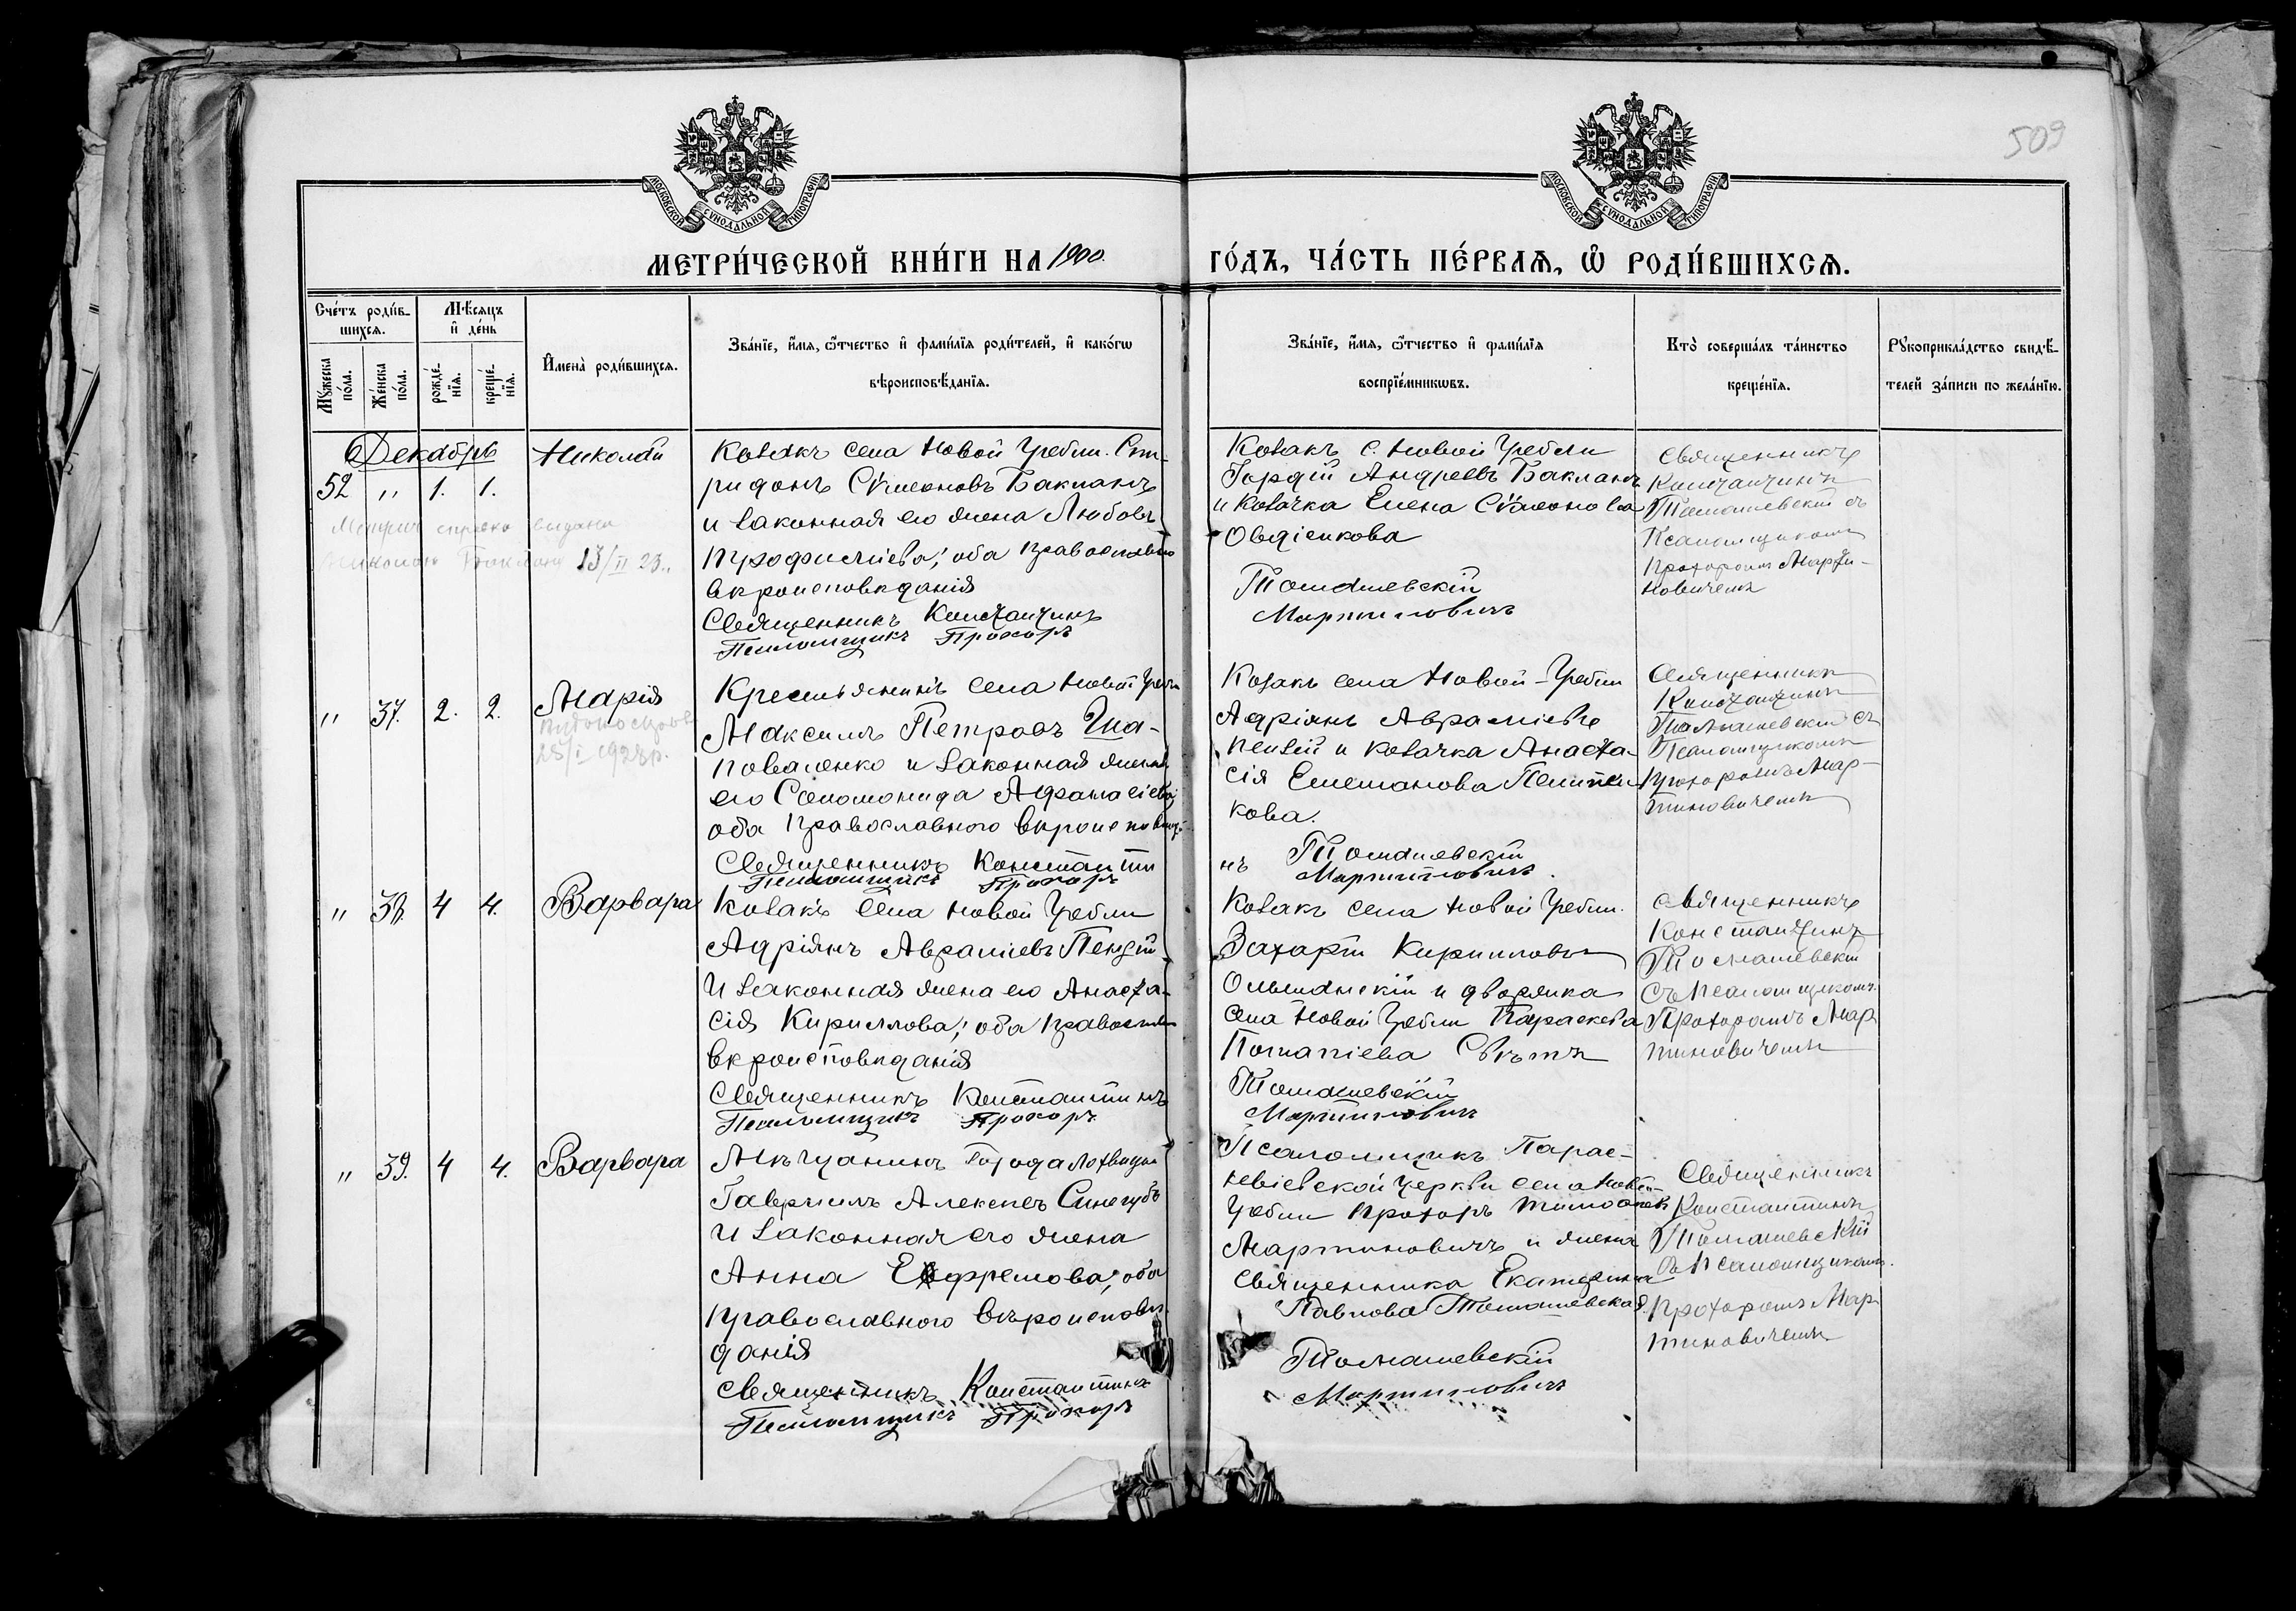 509
МОСКОВСКОЙ СѴНОДАЛЬНОЙ ТИПОГРАФІИ
МОСКОВСКОЙ СѴНОДАЛЬНОЙ ТИПОГРАФІИ
МЕТРИ́ЧЕСКОЙ КНИ́ГИ НА 1900. ГО́ДЪ, ЧА́СТЬ ПЕ́РВАѦ, Ѡ҃ РОДИ́ВШИХСѦ.
Сче́тъ роди́в-
шихсѧ.
Мꙋ́жеска по́ла.
Же́нска по́ла.
Мѣ́сяцъ
и҆ де́нь
рожде́-
нїѧ.
креще́-
нїѧ.
И҆мена̀ роди́вшихсѧ.
Зва́нїе, и҆́мѧ, ѻ҆́тчество и҆ фами́лїѧ роди́телей, и҆ како́гѡ
вѣроисповѣ́данїѧ.
Зва́нїе, и҆́мѧ, ѻ҆́тчество и҆ фами́лїѧ
воспрїе́мникѡвъ.
Кто̀ соверша́лъ та́инство
креще́нїѧ.
Рꙋкоприкла́дство свидѣ́-
телей за́писи по жела́нїю.
Декабрь
52 " 1. 1.
Николай
Метрич справка выдана
Николаю Баклану 13/II 23.
Козакъ села Новой Гребли. Спи-
ридонъ Сѵмеоновъ Бакланъ
и законная его жена Любовь
Трофимиева; оба православно
вѣроисповѣданія
Священникъ Константинъ
Псаломщикъ Прохоръ
Козакъ с. Новой Гребли
Гордій Андреевъ Бакланъ
и козачка Елена Сѵмеонова
Овдіенкова
Томашевскій
Мартиновичъ
Священникъ
Константинъ
Томашевскій съ
Псаломщикомъ
Прохоромъ Марти-
новичемъ
" 37. 2. 2.
Марія
25/I 1928р.
Крестьянинъ села Новой Гребли
Максимъ Петровъ Ша-
поваленко и законная жена
его Соломонида Афанасіева
оба православного вѣроисповѣд
Священникъ Константи
Псаломщикъ Прохоръ
Козакъ села Новой-Гребли
Адріанъ Авраміевъ
Пензій и козачка Анаста-
сія Емельянова
кова.
нъ Томашевскій
Мартиновичъ.
Священникъ
Константинъ
Томашевскій съ
Псаломщикомъ
Прохоромъ Мар-
тиновичемъ
" 38. 4 4.
Варвара
Козакъ села Новой Гребли
Адріянъ Авраміевъ Пензій
и законная жена его Анаста-
сія Кириллова; оба православн
вѣроисповѣданія
Священникъ Константинъ
Псаломщикъ Прохоръ
Козакъ села Новой Гребли.
Захарій Кирилловъ
Ольшанскій и дворянка
села Новой Гребли Параскева
Потапіева
Томашевскій
Мартиновичъ
Священникъ
Константинъ
Томашевскій
съ псаломщикомъ
Прохоромъ Мар
тиновичемъ
" 39. 4 4.
Варвара
Мѣщанинъ города Лохвицы
Гавріилъ Алексѣевъ Синегубъ
и законная его жена
Анна Ефремова; оба
православного вѣроисповѣ
данія
Священникъ Константинъ
Псаломщикъ Прохоръ
Псаломщикъ Парас-
кевіевской церкви села Новой-
Гребли Прохоръ Тимофеевъ
Мартиновичъ и жена
священника Екатерина
Павлова Томашевская.
Томашевскій
Мартиновичъ
Священникъ
Константинъ
Томашевскій
съ псаломщикомъ.
Прохоромъ Мар
тиновичемъ